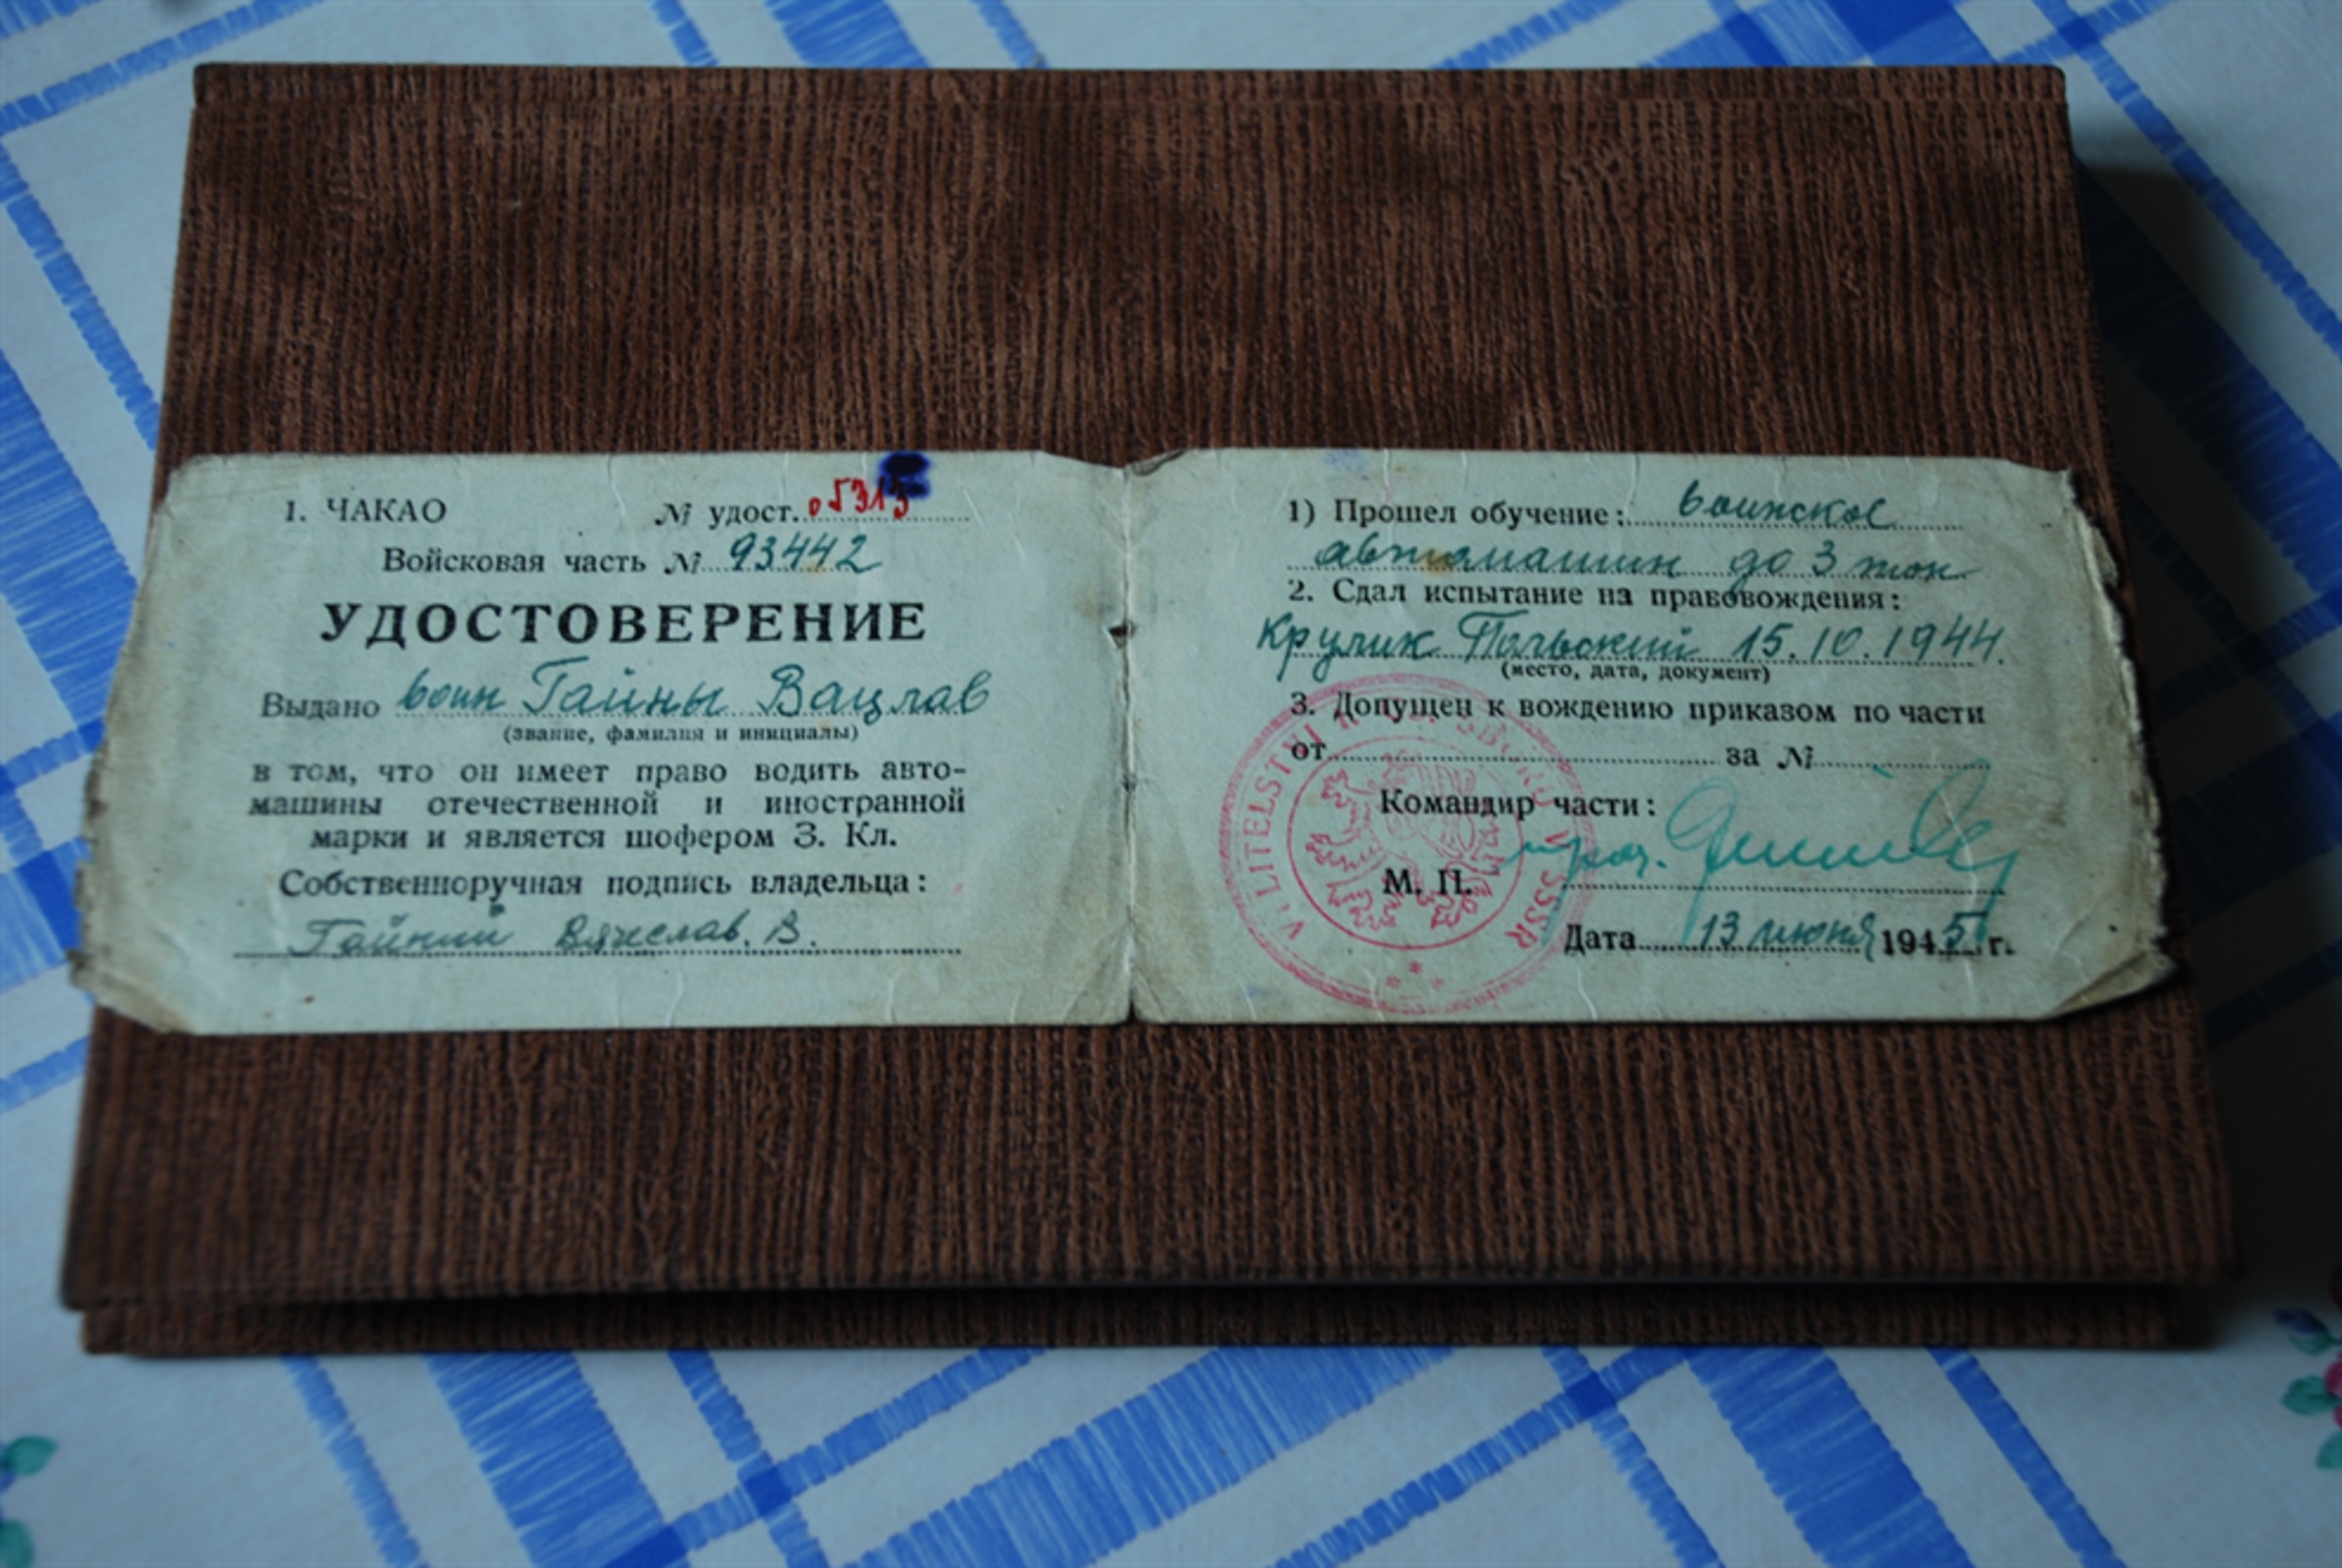 1. ЧАКАО № удост. 05313
Войсковая часть № 93442
УДОСТОВЕРЕНИЕ
Выдано воин Гайны Вацлав
(звание, фамилия и инициалы)
в том, что он имеет право водить авто-
машины отечественной и иностранной
марки и является шофером 3. Кл.
Собственноручная подпись владельца:
Гайный Вячеслав. В.
1) Прошел обучение: воинское
автомашин до 3 тон
2. Сдал испытание на правовождения:
Крулик Польский 15.10.1944.
(место, дата, документ)
3. Допущен к вождению приказом по части
от за №
Командир части:
М. П.
Дата 13 июня 1945 г.
VELITELSTVI SSSR